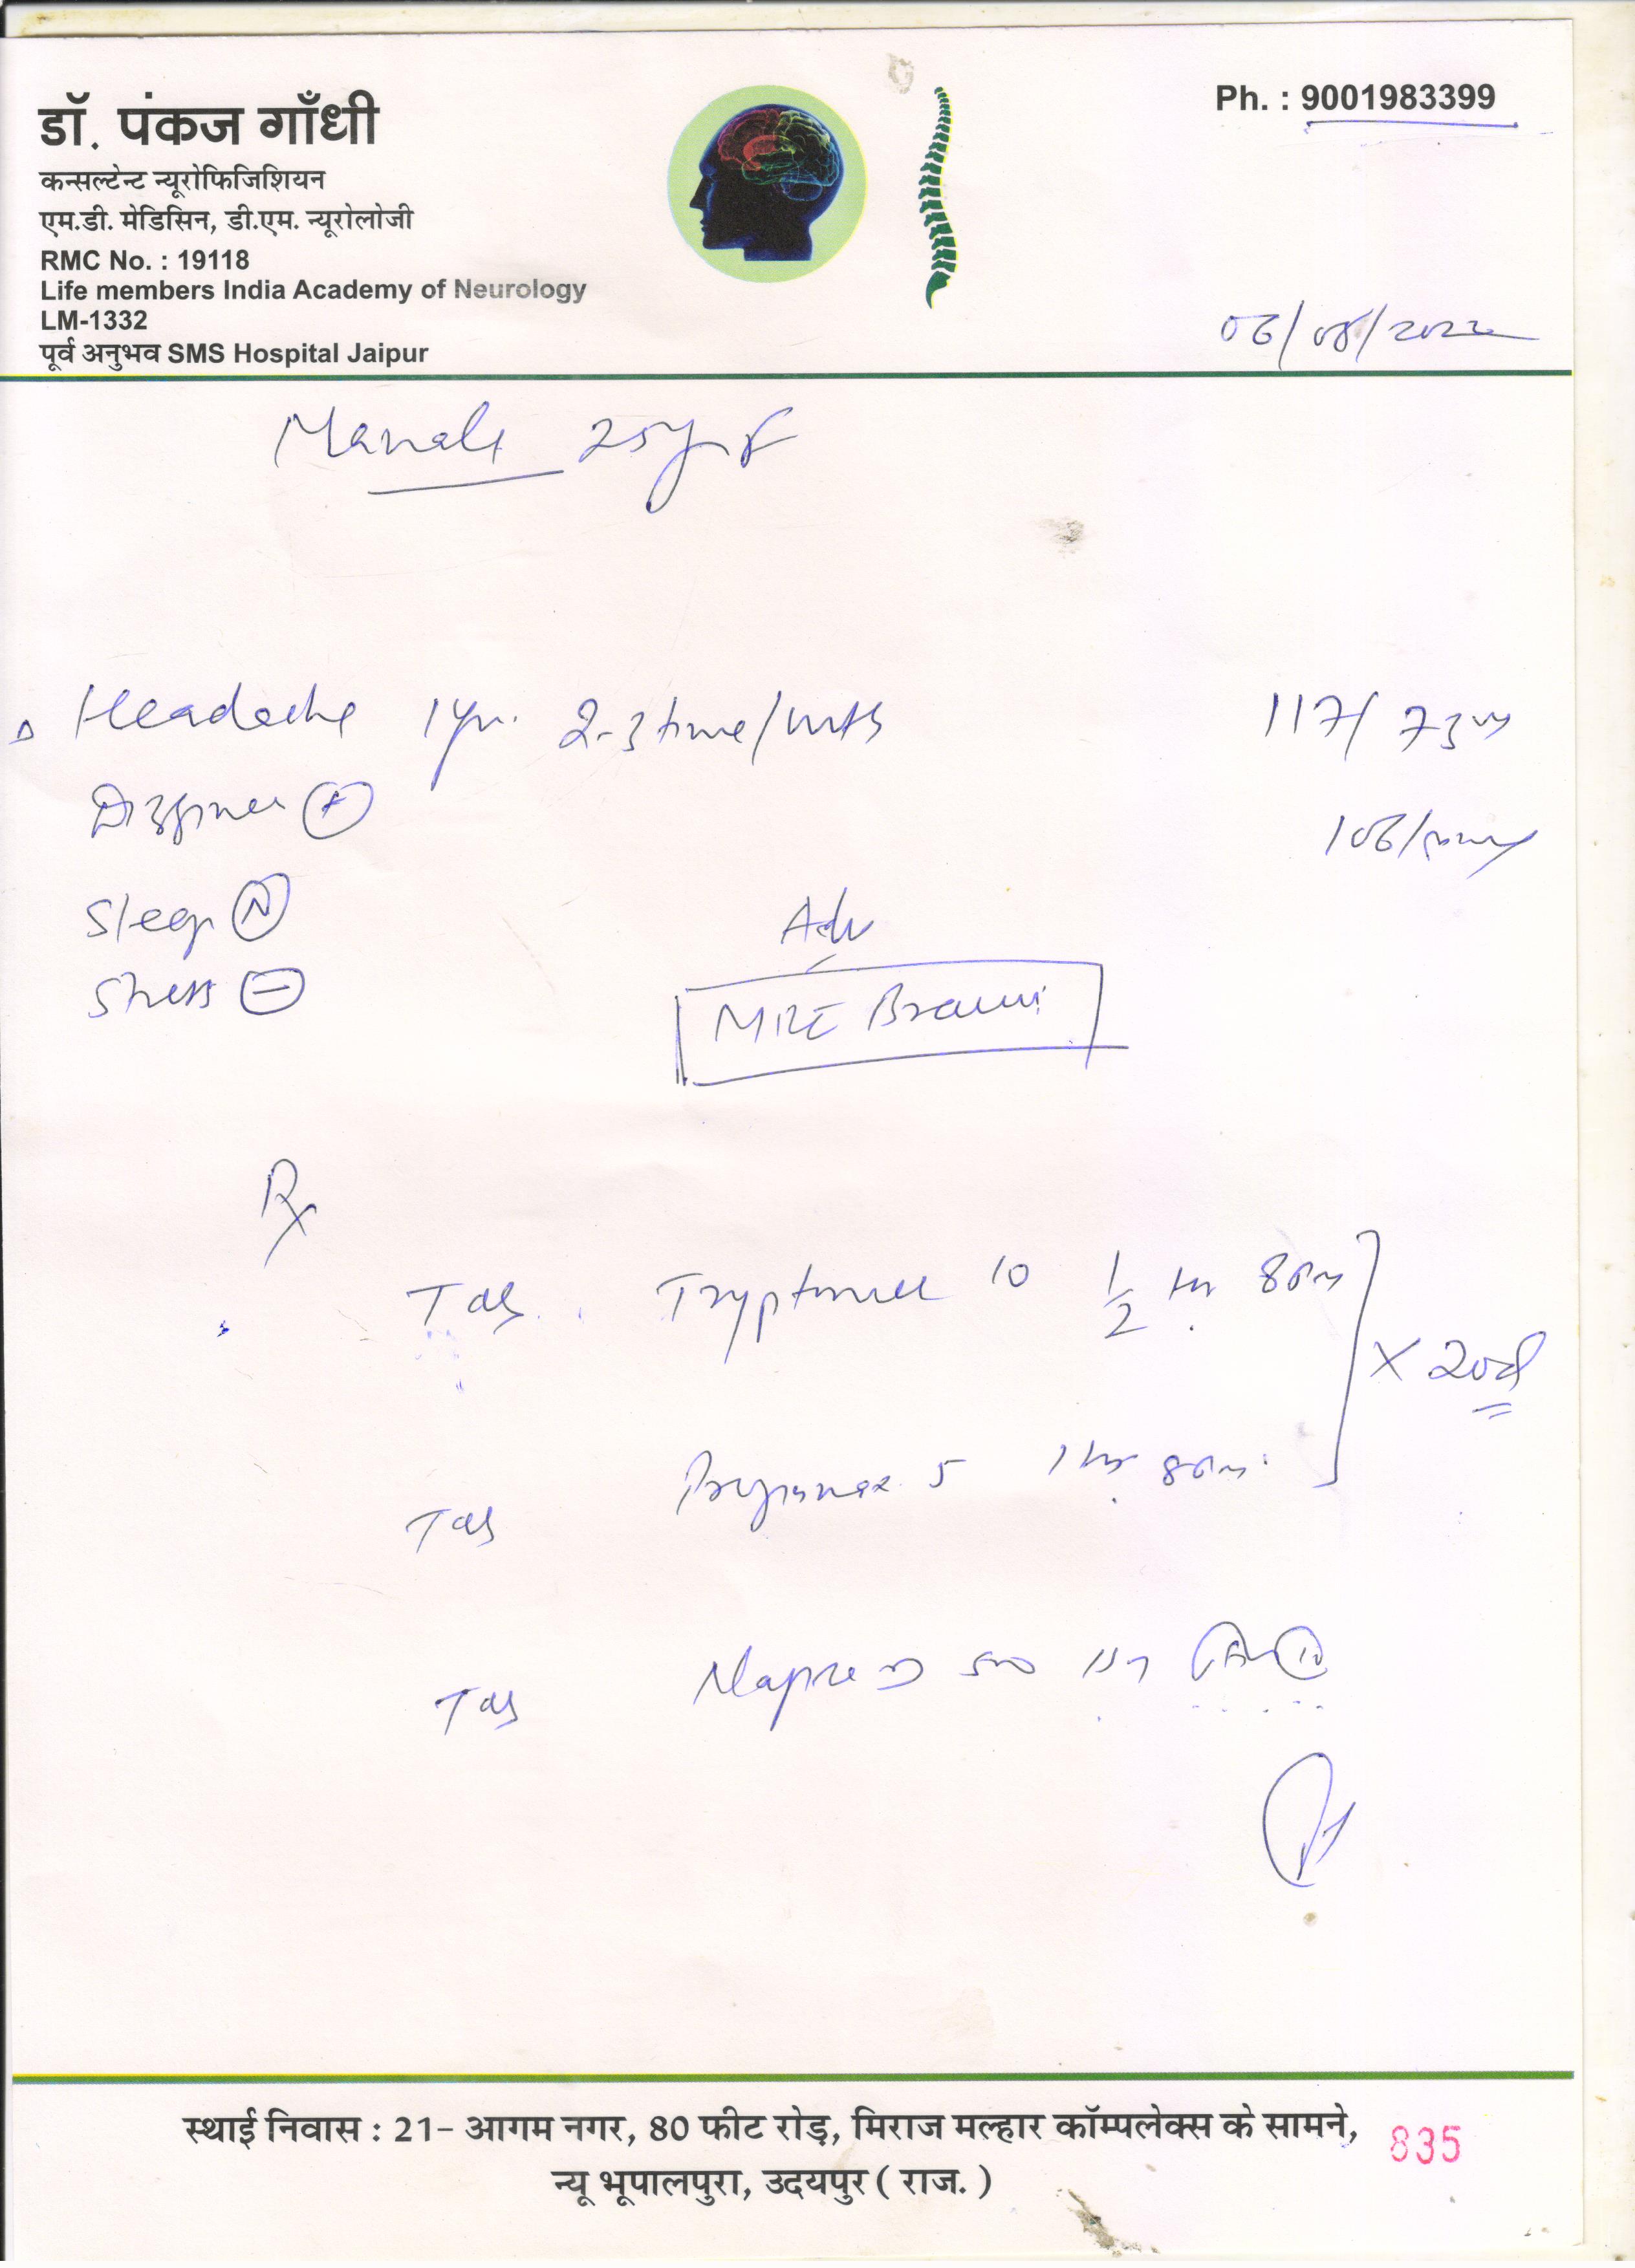 डॉ. पंकज गाँधी
कन्सल्टेन्ट न्यूरोफिजिशियन
एम.डी. मेडिसिन, डी.एम. न्यूरोलोजी
RMC No. : 19118
Life members India Academy of Neurology
LM-1332
पूर्व अनुभव SMS Hospital Jaipur
Ph. : 9001983399
06/08/2022
25yr F
Headache 1yr. 2-3 time/mth 117/73
Dizziness +
106/min
Sleep N
Stress -
Adv
MRI Brain
Rx
Tab Tryptomer 10 1/2 8pm
x 20d
Tab 5 1 8pm
Tab Napra D 500
स्थाई निवास : 21- आगम नगर, 80 फीट रोड़, मिराज मल्हार कॉम्पलेक्स के सामने,
835
न्यू भूपालपुरा, उदयपुर ( राज. )